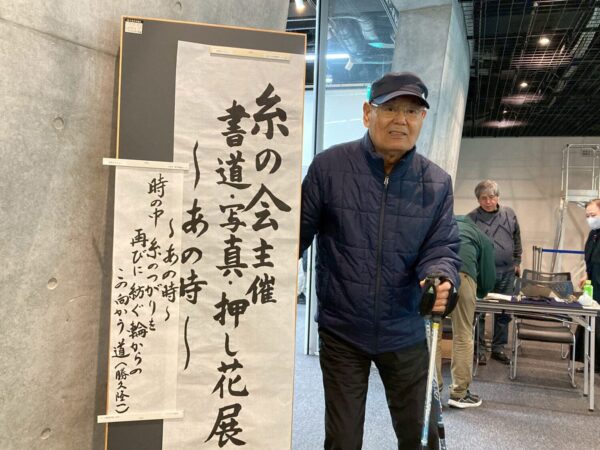 糸の会主催
書道・写真・押し花展
～あの時～
～あの時～
時の中 糸のつがりを
再びに紡ぐ輪からの
この向かう道（勝久隆一）